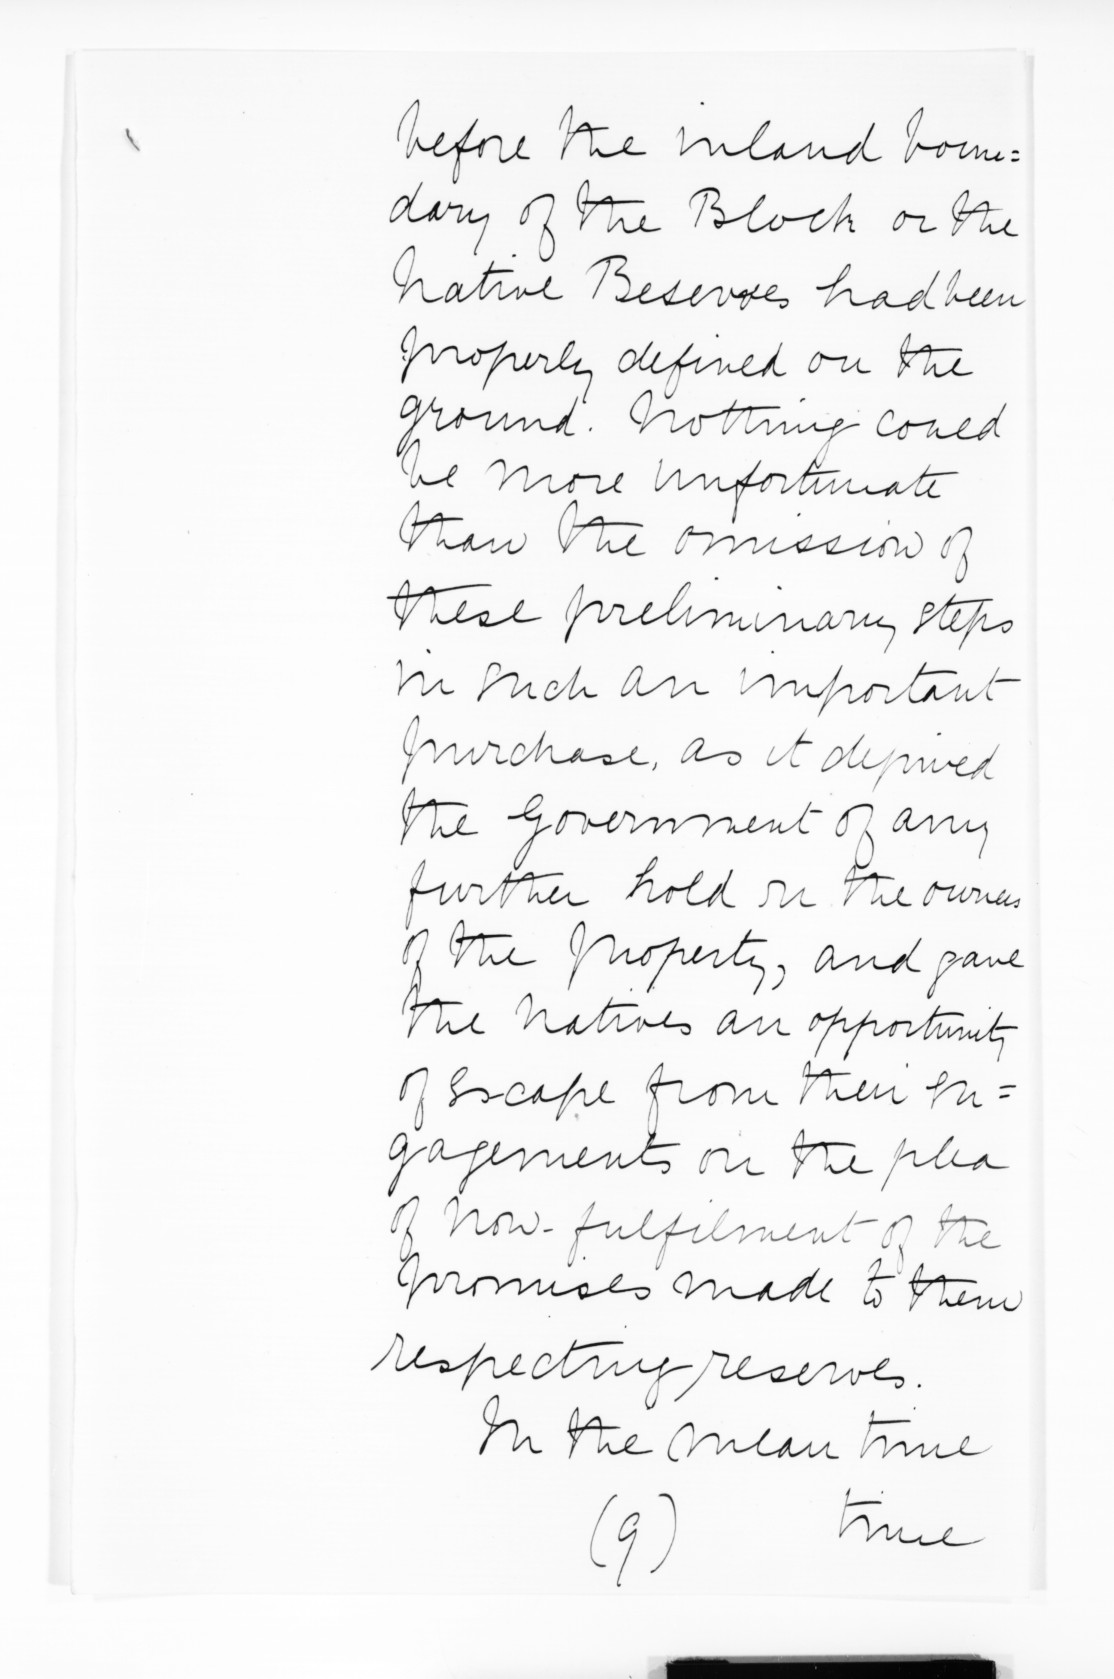 before the inland boun=
dary of the Block or the
Native Reserves had been
properly defined on the
ground. Nothing could
be more unfortunate
than the omission of
these preliminary steps
in such an important
purchase, as it deprived
the Government of any
further hold on the owners
of the property, and gave
the Natives an opportunity
of escape from their en=
gagements on the plea
of non-fulfilment of the
promises made to them
respecting reserves.
In the mean time
(9) time